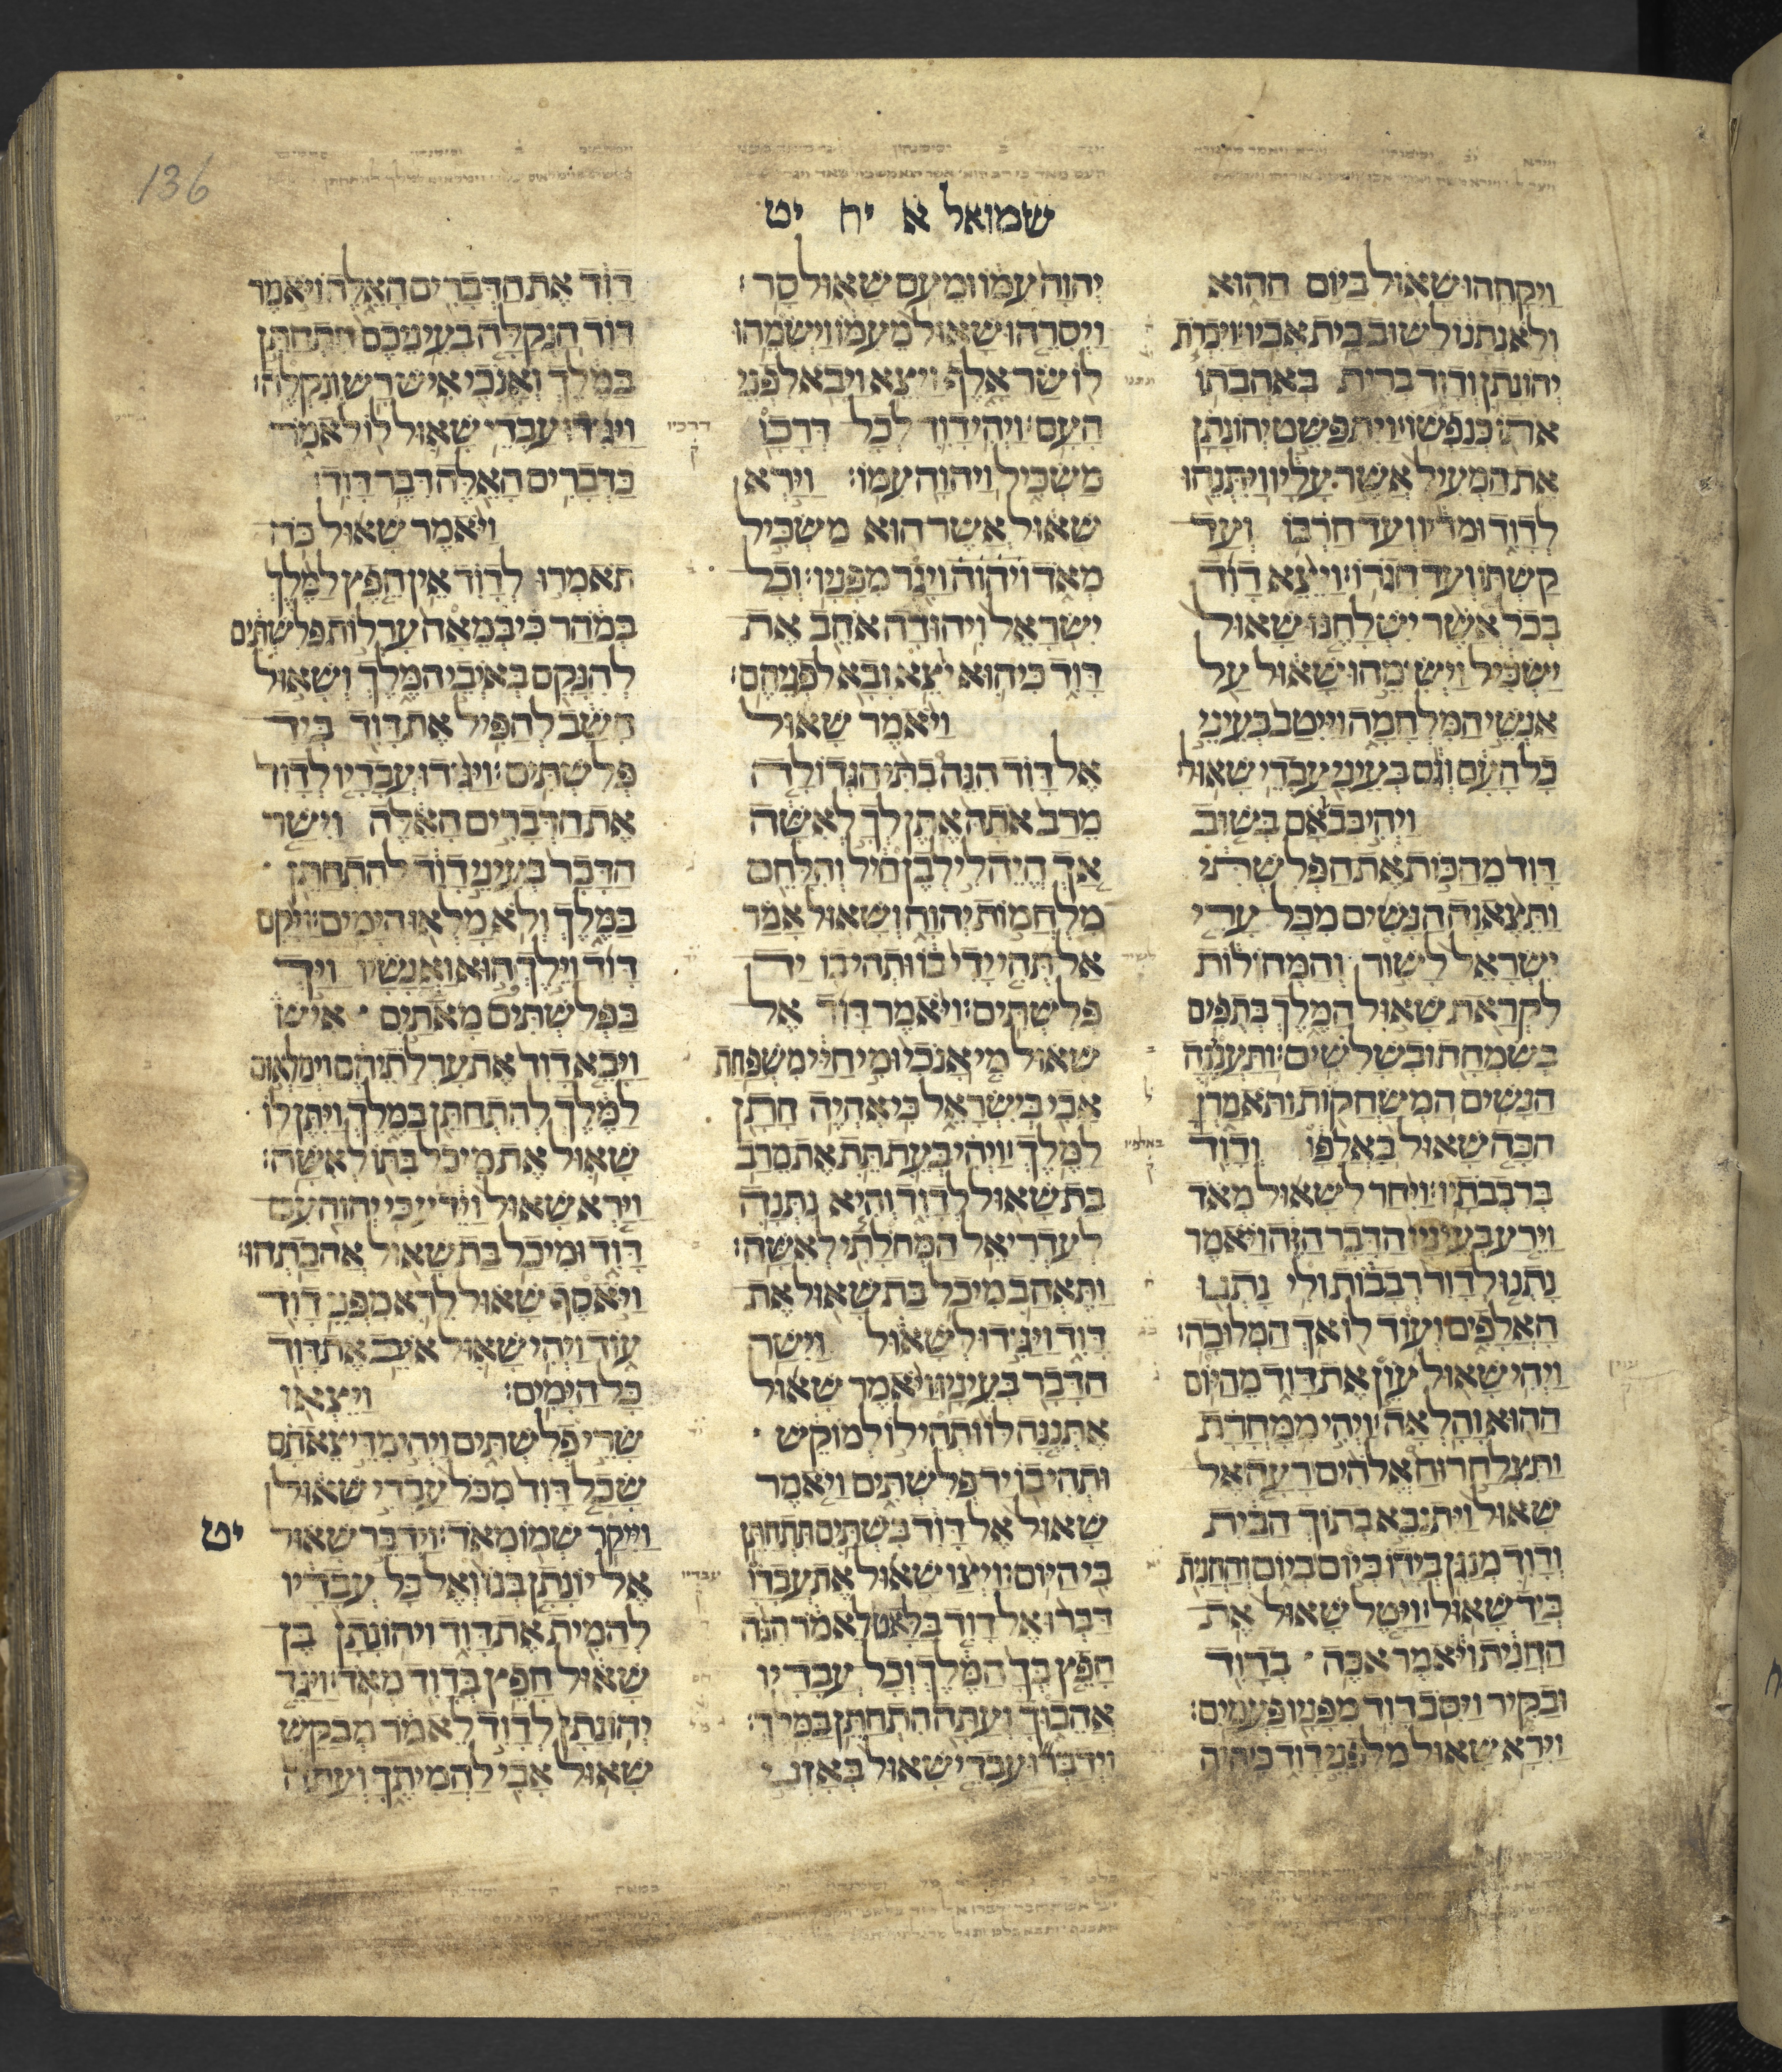 136
שמואל א יח יט
ויקחהו שאול ביום ההוא
ולא נתנו לשוב בית אביו׃ ויכרת
יהונתן ודוד ברית באהבתו
אתו כנפשו׃ ויתפשט יהונתן
את המעיל אשר עליו ויתנהו
לדוד ומדיו ועד חרבו ועד
קשתו ועד חגרו׃ ויצא דוד
בכל אשר ישלחנו שאול
ישכיל וישמהו שאול על
אנשי המלחמה וייטב בעיני
כל העם וגם בעיני עבדי שאול׃
ויהי בבואם בשוב
דוד מהכות את הפלשתי
ותצאנה הנשים מכל ערי
ישראל לשור והמחולות
לקראת שאול המלך בתפים
בשמחה ובשלשים׃ ותענינה
הנשים המשחקות ותאמרן
הכה שאול באלפו ודוד
ברבבתיו׃ ויחר לשאול מאד
וירע בעיניו הדבר הזה ויאמר
נתנו לדוד רבבות ולי נתנו
האלפים ועוד לו אך המלוכה׃
ויהי שאול עון את דוד מהיום
ההוא והלאה׃ ויהי ממחרת
ותצלח רוח אלהים רעה אל
שאול ויתנבא בתוך הבית
ודוד מנגן בידו כיום ביום והחנית
ביד שאול׃ ויטל שאול את
החנית ויאמר אכה בדוד
ובקיר ויסב דוד מפניו פעמים׃
וירא שאול מלפני דוד כי היה
יהוה עמו ומעם שאול סר׃
ויסרהו שאול מעמו וישמהו
לו שר אלף ויצא ויבא לפני
העם׃ ויהי דוד לכל דרכו
משכיל ויהוה עמו׃ וירא
שאול אשר הוא משכיל
מאד ויגר מפניו׃ וכל
ישראל ויהודה אהב את
דוד כי הוא יוצא ובא לפניהם׃
ויאמר שאול
אל דוד הנה בתי הגדולה
מרב אתה אתן לך לאשה
אך היה לי לבן חיל והלחם
מלחמות יהוה ושאול אמר
אל תהי ידי בו ותהי בו יד
פלשתים׃ ויאמר דוד אל
שאול מי אנכי ומי חיי משפחת
אבי בישראל כי אהיה חתן
למלך׃ ויהי בעת תת את מרב
בת שאול לדוד והיא נתנה
לעדריאל המחלתי לאשה׃
ותאהב מיכל בת שאול את
דוד ויגידו לשאול וישר
הדבר בעיניו׃ ויאמר שאול
אתננה לו ותהי לו למוקש
ותהי בו יד פלשתים ויאמר
שאול אל דוד בשתים תתחתן
בי היום׃ ויצו שאול את עבדו
דברו אל דוד בלאט לאמר הנה
חפץ בך המלך וכל עבדיו
אהבוך ועתה התחתן במלך׃
וידברו עבדי שאול באזני
דוד את הדברים האלה ויאמר
דוד הנקלה בעיניכם התחתן
במלך ואנכי איש רש ונקלה׃
ויגדו עבדי שאול לו לאמר
כדברים האלה דבר דוד׃
ויאמר שאול כה
תאמרו לדוד אין חפץ למלך
במהר כי במאה ערלות פלשתים
להנקם באיבי המלך ושאול
חשב להפיל את דוד ביד
פלשתים׃ ויגדו עבדיו לדוד
את הדברים האלה וישר
הדבר בעיני דוד להתחתן
במלך ולא מלאו הימים׃ ויקם
דוד וילך הוא ואנשיו ויך
בפלשתים מאתים איש
ויבא דוד את ערלתיהם וימלאום
למלך להתחתן במלך ויתן לו
שאול את מיכל בתו לאשה׃
וירא שאול וידע כי יהוה עם
דוד ומיכל בת שאול אהבתהו׃
ויאסף שאול לרא מפני דוד
עוד ויהי שאול איב את דוד
כל הימים׃ ויצאו
שרי פלשתים ויהי מדי צאתם
שכל דוד מכל עבדי שאול
וייקר שמו מאד׃ וידבר שאול יט
אל יונתן בנו ואל כל עבדיו
להמית את דוד ויהונתן בן
שאול חפץ בדוד מאד׃ ויגד
יהונתן לדוד לאמר מבקש
שאול אבי להמיתך ועתה
דרכיו
ק
באלפיו
ק
עבדיו
ק